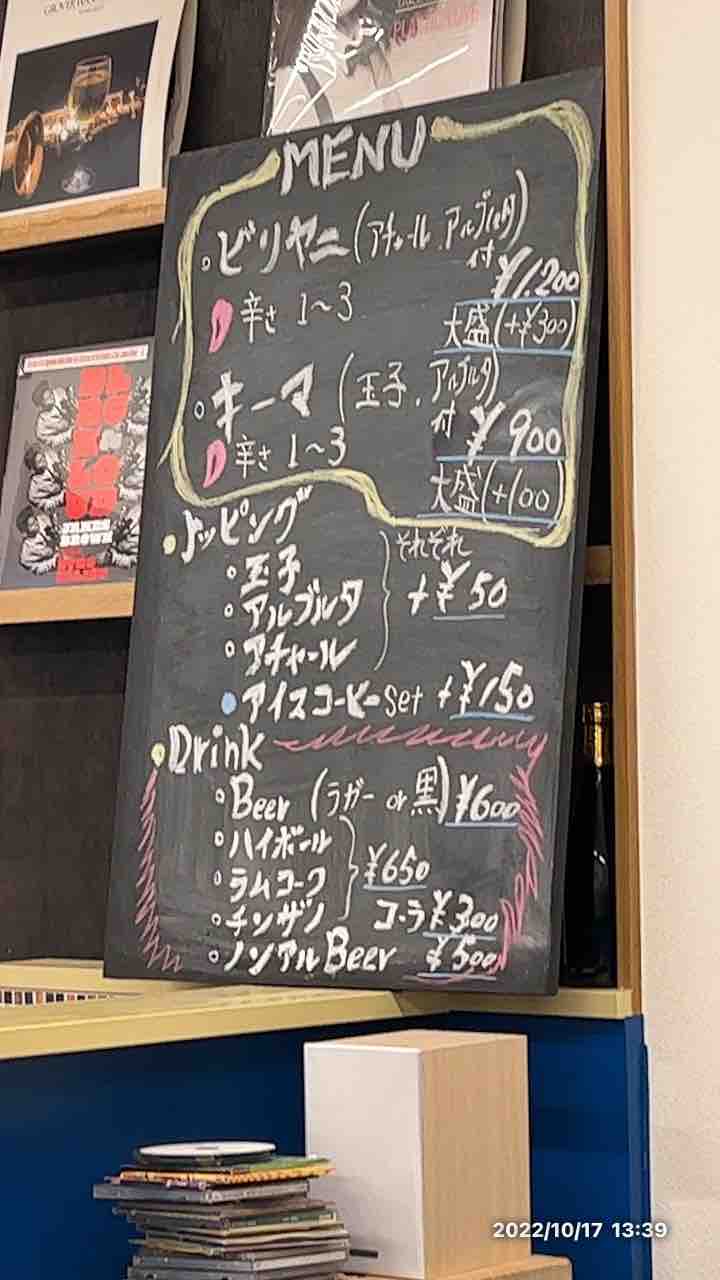 GROVER WASHINGTON
MENU
ビリヤニ(アチャール、アルブルタ)
付 ¥1,200
辛さ 1〜3
大盛(+¥300)
キーマ(玉子、アルブルタ)
付 ¥900
辛さ 1〜3
大盛(+100)
トッピング
玉子
それぞれ
アルブルタ
+¥50
アチャール
アイスコーヒーSet +¥150
Drink
Beer (ラガー or 黒) ¥600
ハイボール
ラムコーク
¥650
チンザノ
コーラ ¥300
ノンアルBeer ¥500
JAMES
BROWN
2022/10/17 13:39